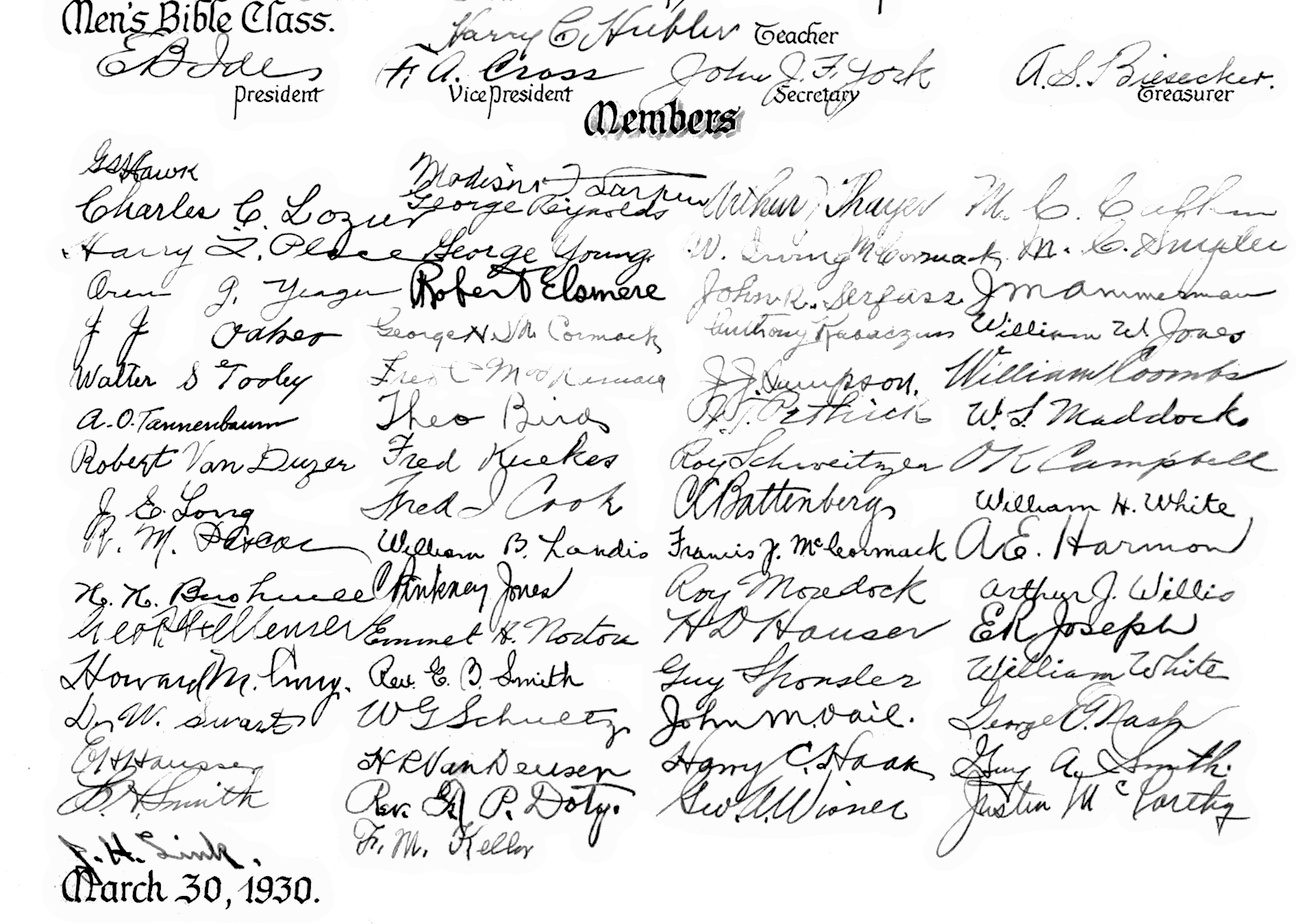 Men's Bible Class.
Harry C. Hubler Teacher
E B Ides F. A. Cross John J. F. York A. S. Biesecker.
President Vice President Secretary Treasurer
Members
G S Hawk
Charles C. Lozier
Harry L. Place
Oren J. Yeager
J J
Walter S Tooley
A. O. Tannenbaum
Robert Van Duzer
J. E. Long
R. M.
H. H. Bushnell
Geo
Howard M.
D. W. Swarts
E H Hausser
Smith
J. H. Link.
Madison F Larkin
George Reynolds
George Young.
Robert Elsmere
George H. Mc Cormack
Fred C
Theo Birds
Fred Kuekes
Fred J Cook
William B. Landis
Pinkney Jones
Emmet H. Norton
Rev. E. B. Smith
W G Schultz
H R Van Deusen
Rev. P. Doty.
F. M. Keller
Arthur Thayer
W. Irving McCormack
John R. Serfass
Anthony
J. J. Simpson.
Pethick
Roy Schweitzer
C Battenberg
Francis J. McCormack
Roy Moredock
H D Hauser
Guy Sponsler
John M. Vail.
Harry C. Haak
Geo A. Wisner
M. C.
M. C.
J M Ammerman
William W. Jones
William Coombs
W. L. Maddock
O K Campbell
William H. White
A. E. Harmon
Arthur J. Willis
E R Joseph
William White
George E. Nash
Guy A. Smith.
Justin McCarthy
March 30, 1930.